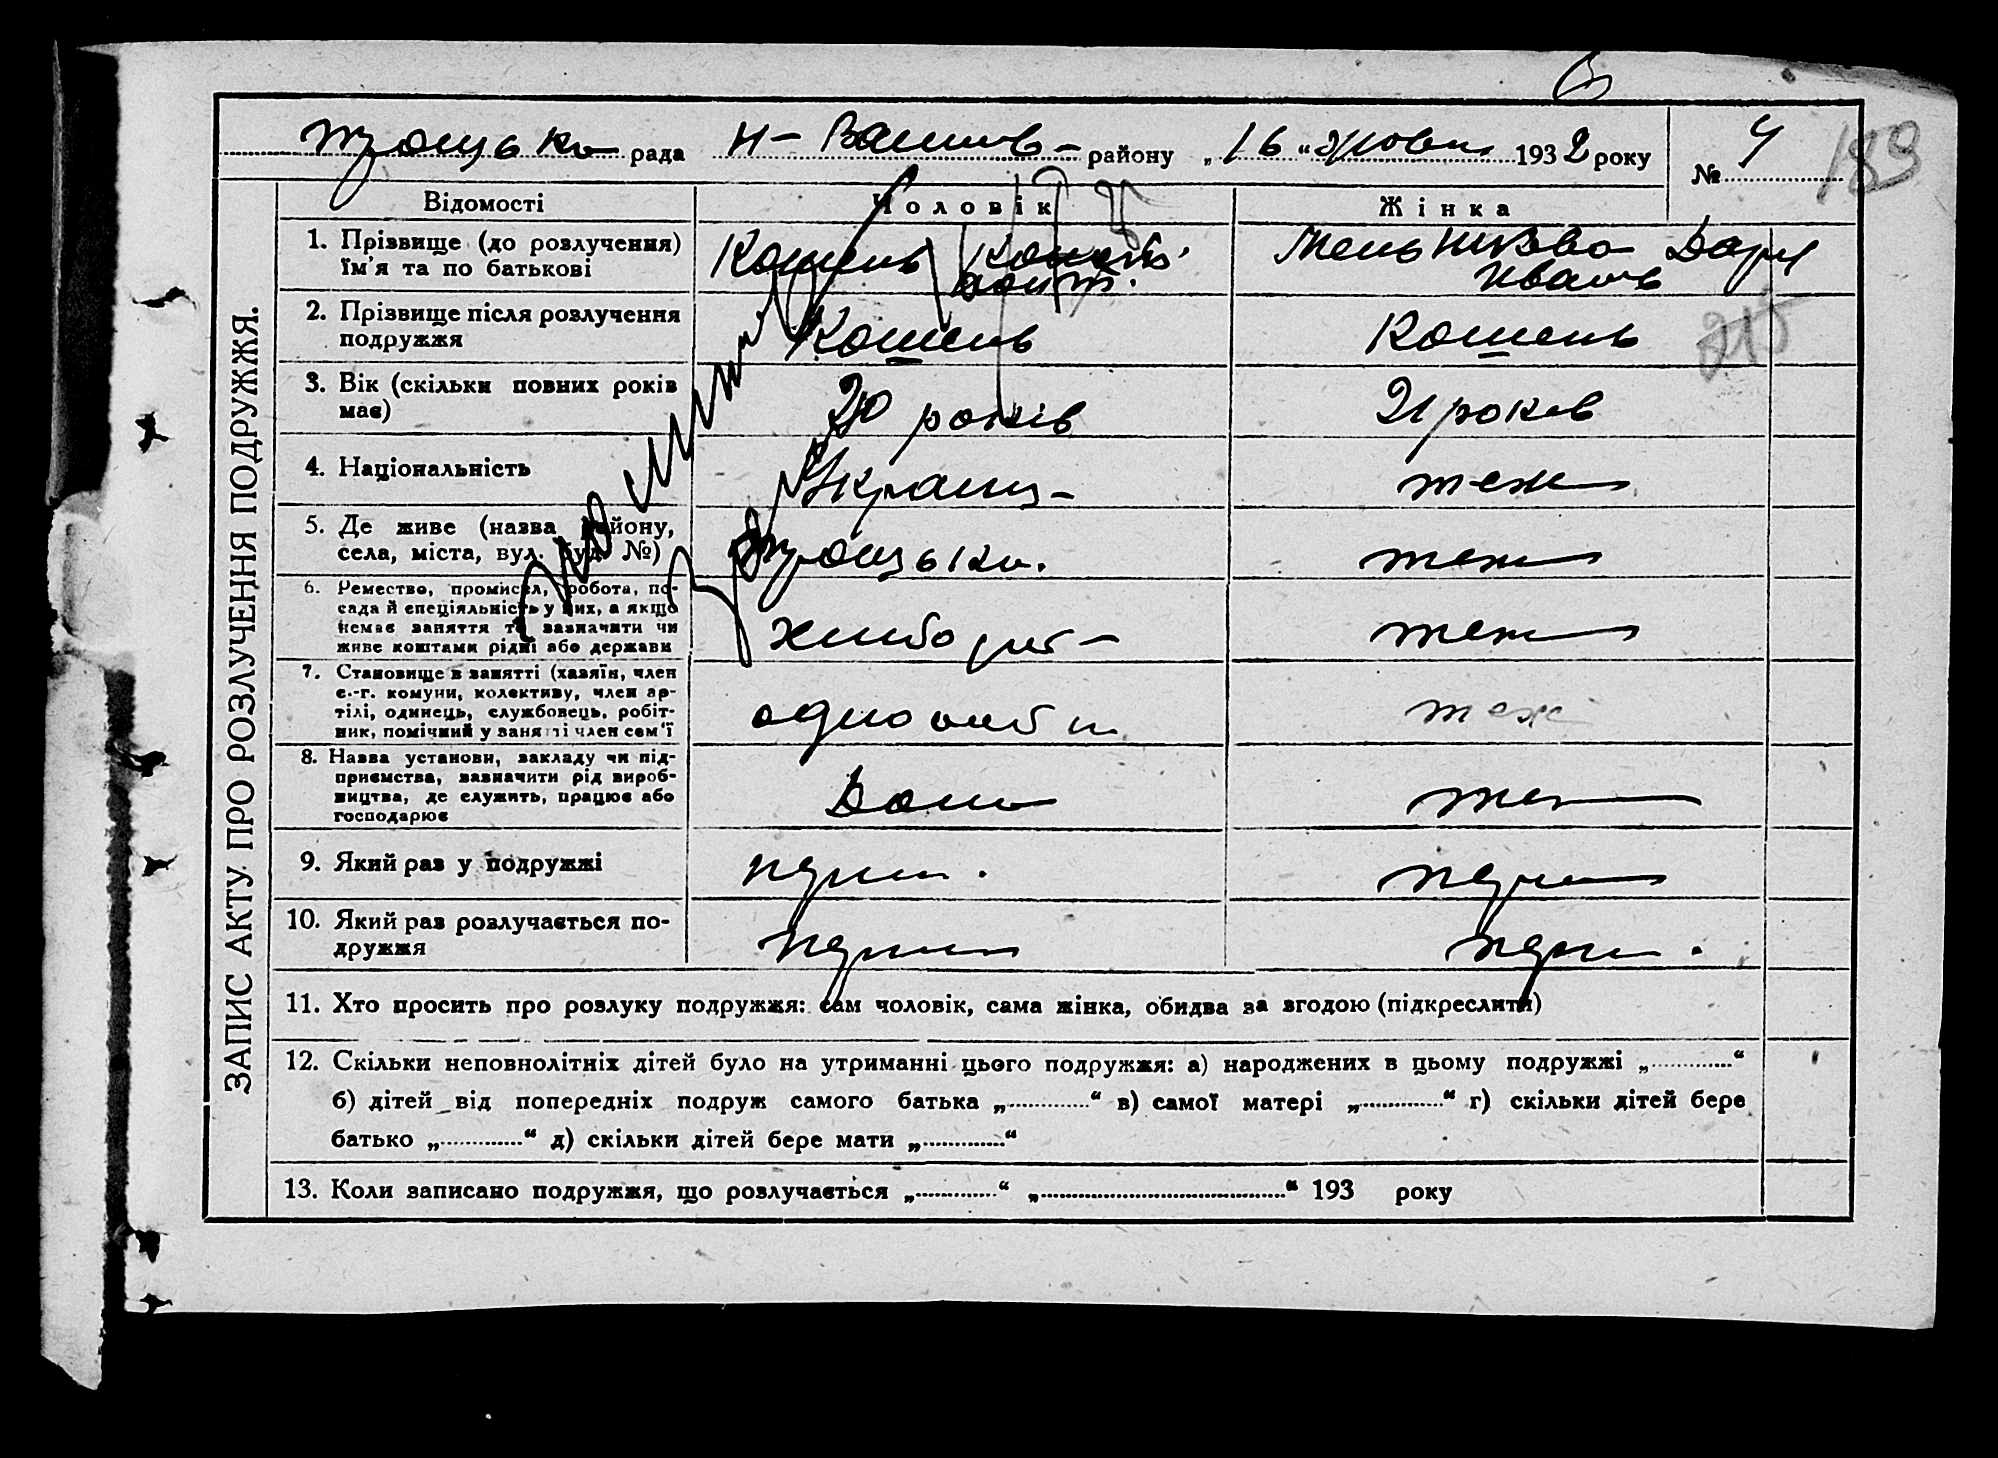 рада Н- району „16“ жовтн 1932 року № 4
189
Відомості Чоловік Жінка
1. Прізвище (до розлучення) ім'я та по батькові
Кошень
Мельникова Дарія
Иванів
2. Прізвище після розлучення подружжя
Кошень Кошень
215
3. Вік (скільки повних років має)
20 років 21 років
4. Національність
Украин- теж
5. Де живе (назва району, села, міста, вул. буд. №)
теж
6. Ремество, промисел, робота, посада й спеціяльність у них, а якщо немає заняття то зазначити чи живе коштами рідні або держави
хлібороб- теж
7. Становище в занятті (хазяїн, член с.-г. комуни, колективу, член артілі, одинець, службовець, робітник, помічний у занятті член сем'ї
одноосібн теж
8. Назва установи, закладу чи підприємства, зазначити рід виробництва, де служить, працює або господарює
Дома теж
9. Який раз у подружжі
перш. перш
10. Який раз розлучається подружжя
перш перш.
11. Хто просить про розлуку подружжя: сам чоловік, сама жінка, обидва за згодою (підкреслити)
12. Скільки неповнолітніх дітей було на утриманні цього подружжя: а) народжених в цьому подружжі „.............“
б) дітей від попередніх подруж самого батька „.............“ в) самої матері „.............“ г) скільки дітей бере
батько „.............“ д) скільки дітей бере мати „.............“
13. Коли записано подружжя, що розлучається „.............“ „.......................................“ 193 року
ЗАПИС АКТУ ПРО РОЗЛУЧЕННЯ ПОДРУЖЖЯ.